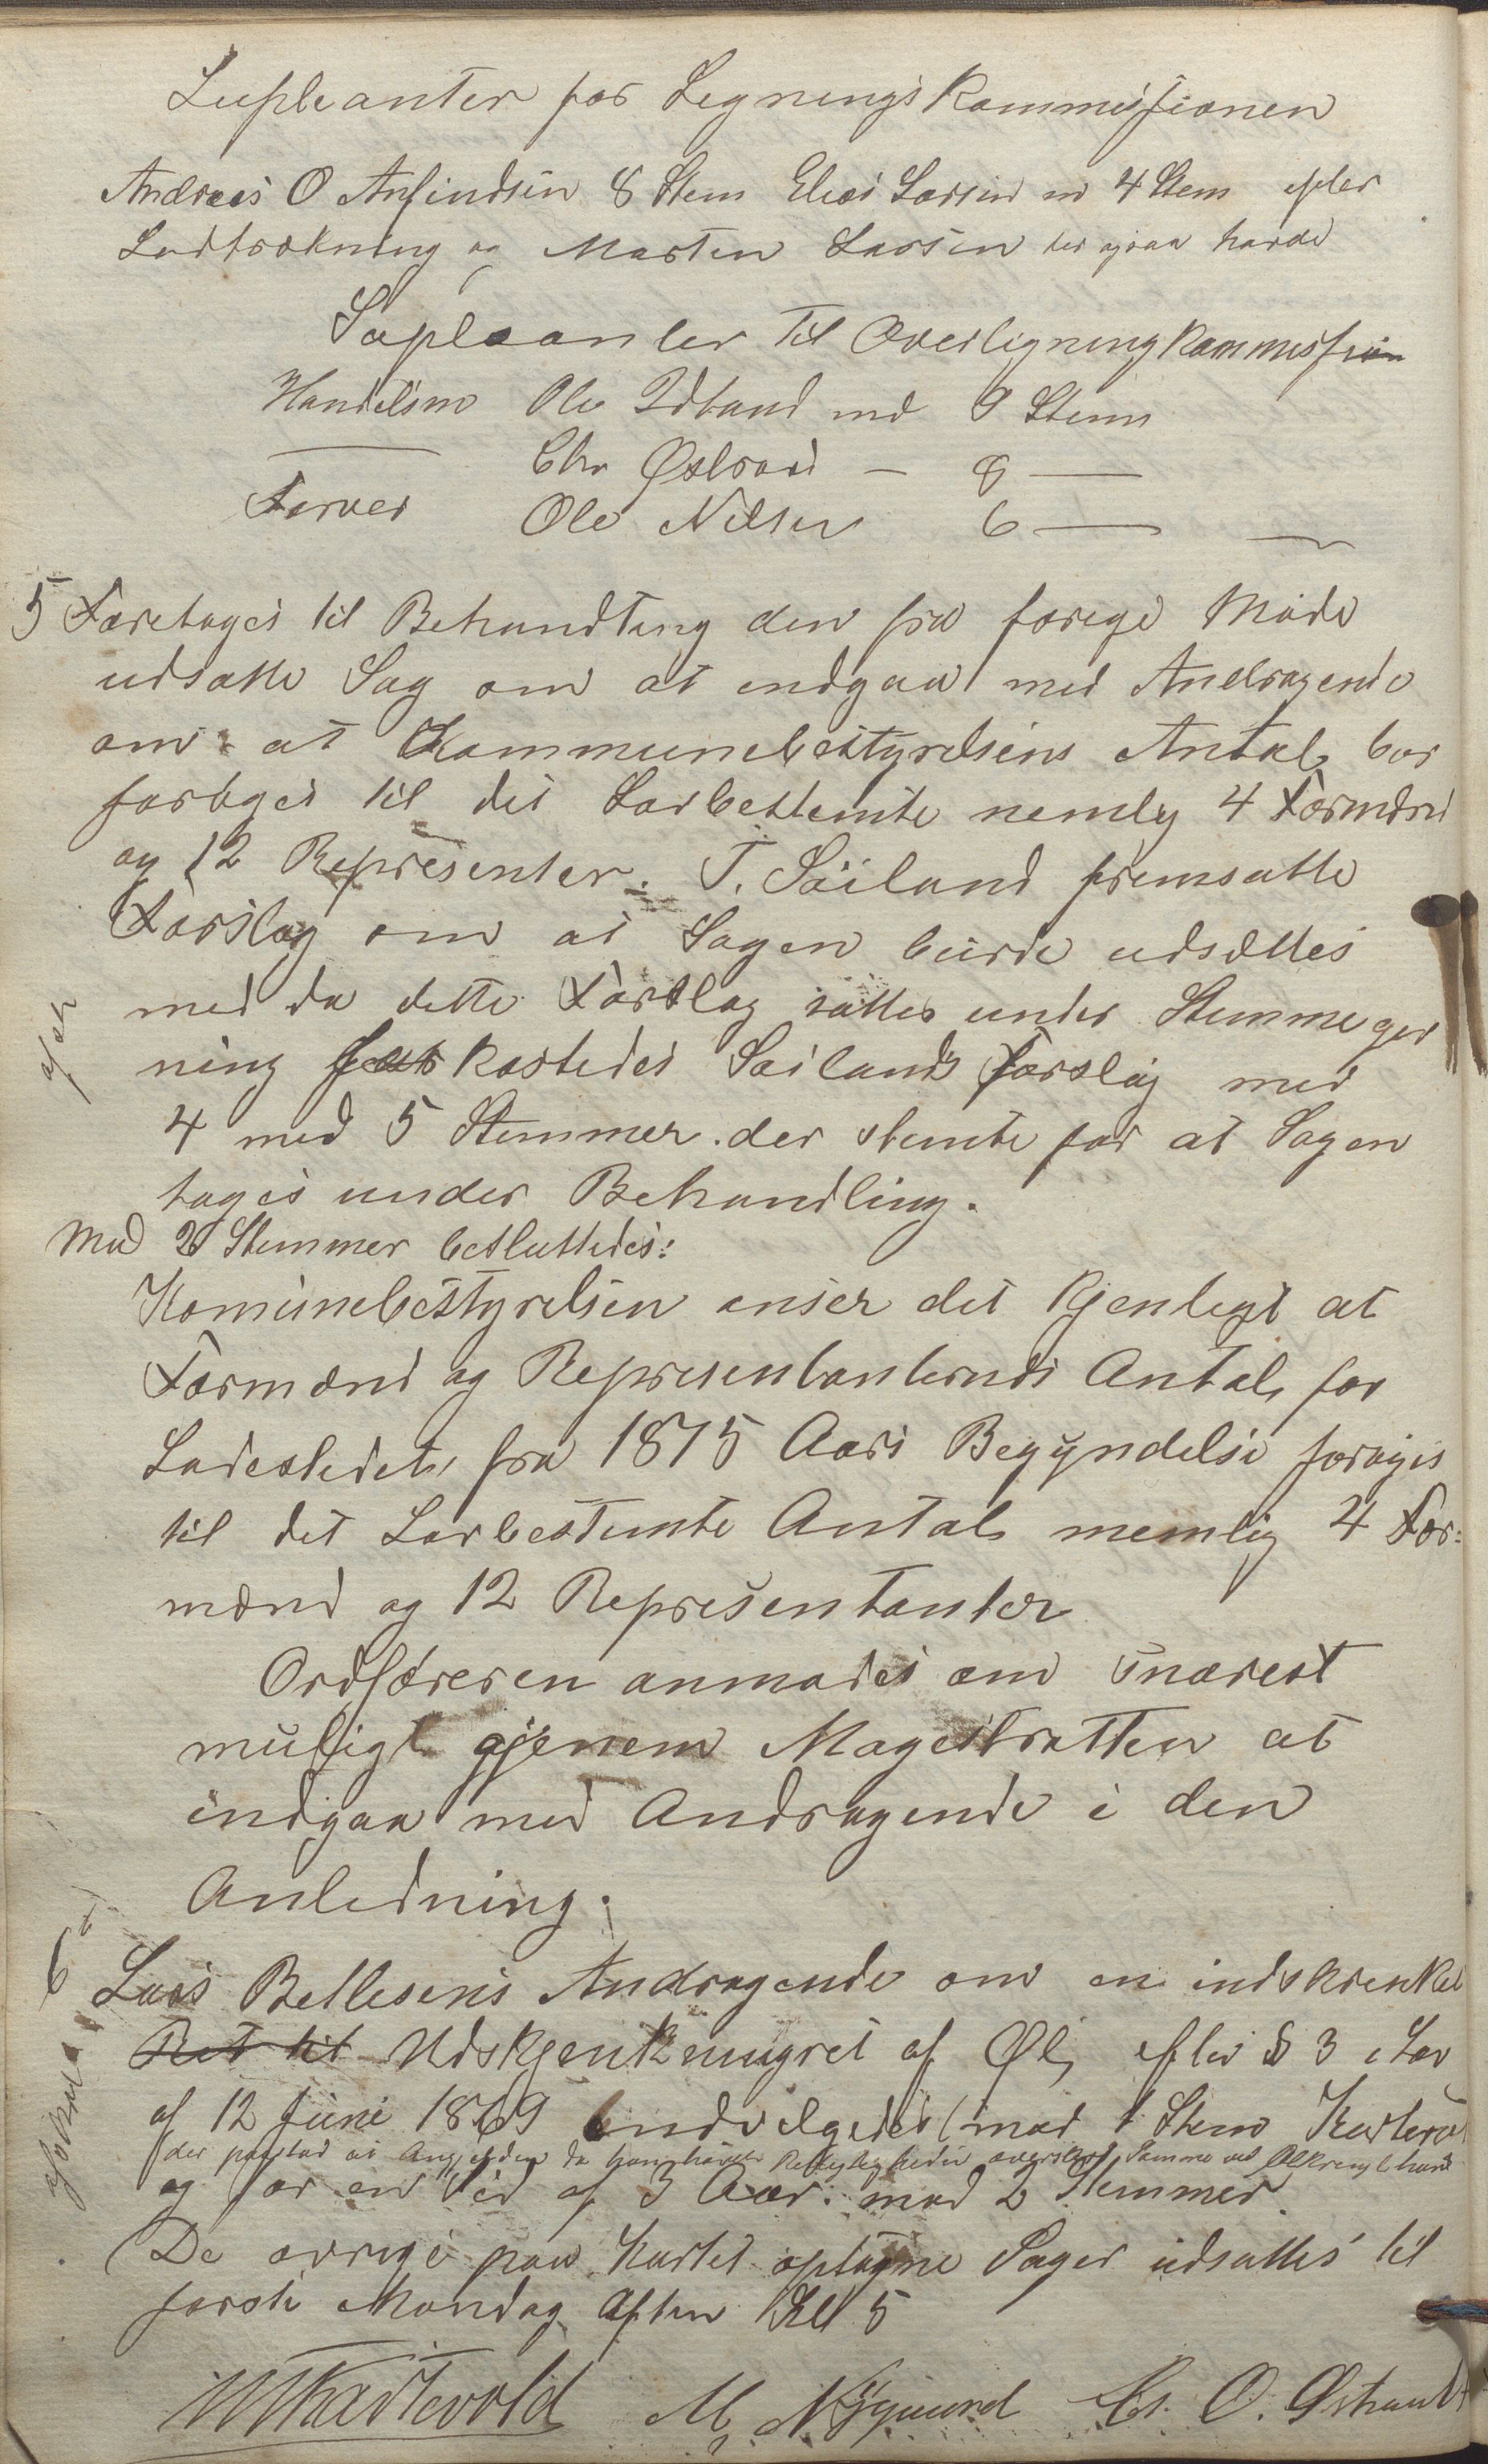 Supleanter for Legningskommissionen
Andreas O Anfindsen 8 Stem Elias Larsen m 4 Stem efter
Lodtrækning og Morten Larsen der ogsaa havde
Suplæanter til Overligningkommission
Handelsm Ole Idland md 9 Stem
Chr Østraad – 8 —
Farver Ole Nilsen 6 —
5 Foretoges til Behandling den fra forege Møde
udsatte Sag om at indgaa med Andragende
om at Kommunebestyrelsens Antal bør
forøges til det Lovbestemte nemlig 4 Formænd
og 12 Representer. T. Sæiland fremsatte
Forslag om at Sagen burde udsættes
med da dette Forslag sattes under Stemmegiv
ning forkastedes Sæilands Forslag med
4 mod 5 Stemmer der stemte for at Sagen
toges under Behandling.
Mod 2 Stemmer besluttedes:
Komunebestyrelsen anser det tjenligt at
Formænd og Representanternes Antal for
Ladestedet fra 1875 Aars Begyndelse forøges
til det Lovbestemte Antal nemlig 4 For=
mænd og 12 Representanter
Ordføreren anmodes om snarest
muligt gjenem Magestratten at
indgaa med Andragende i den
Anledning.
6 Lars Bellesens Andragende om en indskrenket
Ret til Udskjenkningret af Øl, efter § 3 i Lov
af 12 Juni 1869 indvilgedes (mod 1 Stem Kartevold
der paastod at han Rettigheder
og for en Tid af 3 Aar. mod 2 Stemmer
De øvrige paa Kartet optagne Sager udsattes til
første Mandag Aften Kl 5
Kartevold M, Nygaard Chr. O. Østraadt